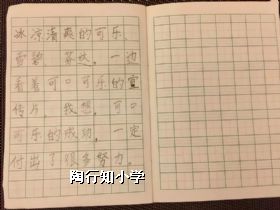 冰凉清爽的可乐、
雪碧、芬达。一边
看着可口可乐的宣
传片，我想，可口
可乐的成功，一定
付出了很多努力。
陶行知小学